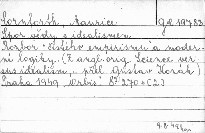 Cornforth, Maurice g 2 19783
Spor vědy s idealismem
Rozbor "čistého empirismu" a moder-
ní logiky. (Z angl. orig. Science ver-
sus idealism, přel. Gustav Horák)
Praha 1949 Orbis. 8° 270 + (2)